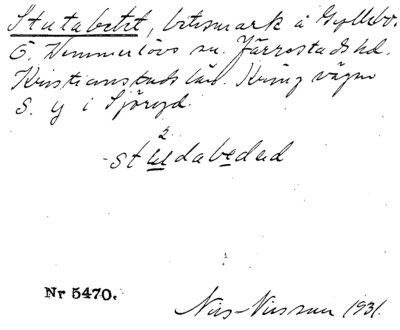 Stutabetet, betesmark å Gyllebo.
Ö. Vemmerlövs sn. Järrestads hd.
Kristianstads län. Kring vägen
S. y i Sjöröd.
2
studabedad
Nr 5470.
Nils Nilsson 1931.